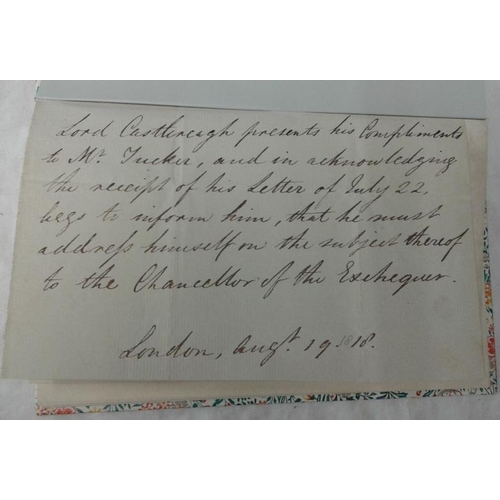 Lord Castlereagh presents his Compliments
to Mr. Tucker, and in acknowledging
the receipt of his Letter of July 22,
begs to inform him, that he must
address himself on the subject thereof
to the Chancellor of the Exchequer.
London, Augt. 19. 1818.